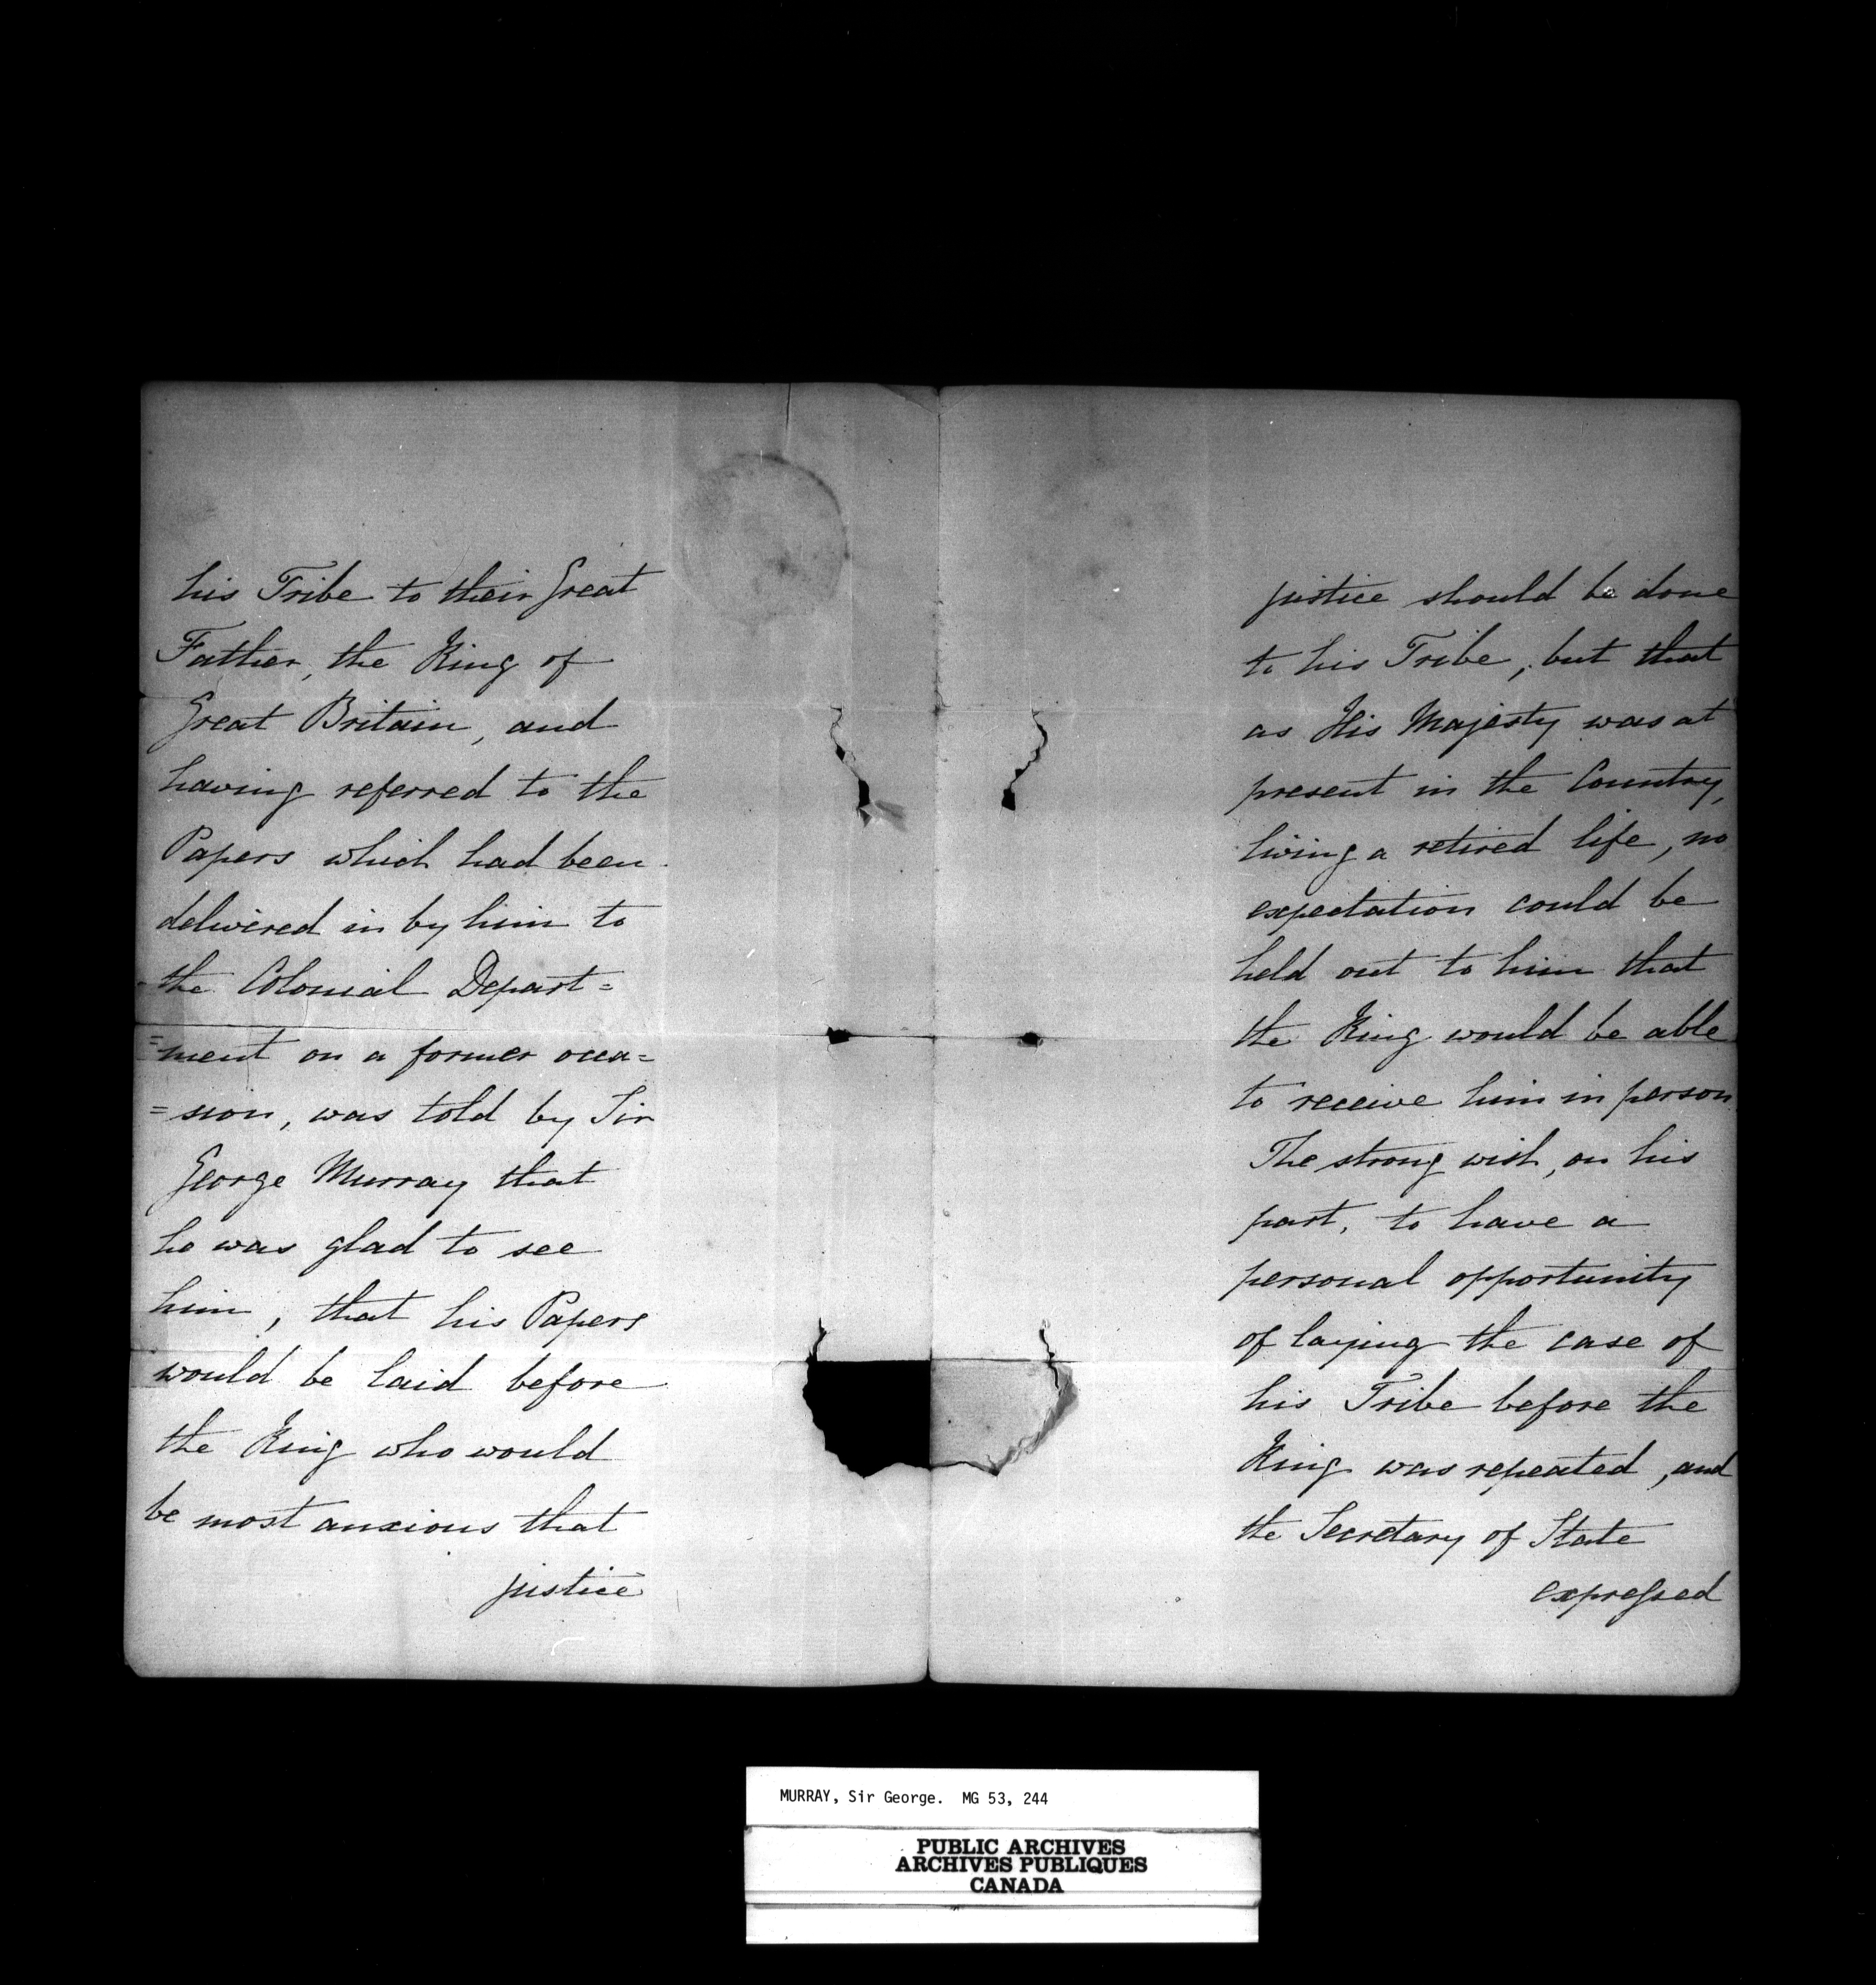 his Tribe to their Great
Father, the King of
Great Britain, and
having referred to the
Papers which had been
delivered in by him to
the Colonial Depart=
=ment on a former occa=
=sion, was told by Sir
George Murray that
he was glad to see
him, that his Papers
would be laid before
the King who would
be most anxious that
justice
justice should be done
to his Tribe, but that
as His Majesty was at
present in the Country,
living a retired life, no
expectation could be
held out to him that
the King would be able
to receive him in person
The strong wish, on his
part, to have a
personal opportunity
of laying the case of
his Tribe before the
King was repeated, and
the Secretary of State
expressed
MURRAY, Sir George. MG 53, 244
PUBLIC ARCHIVES
ARCHIVES PUBLIQUES
CANADA